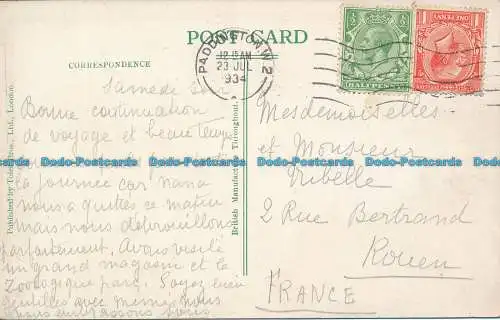 POST CARD
CORRESPONDENCE
PADDINGTON. W.2
12 15 AM
23 JUL
1934
HALFPENNY
ONE PENNY
Published by Lo Ltd., London.
British Manufacture Throughout.
Samedi soir
Bonne continuation
de voyage et beau temps
la journée car nana
nous a quittés ce matin
mais nous débrouillons
parfaitement. Avons visité
un grand magasin et le
Zoologique parc. Soyez bien
gentilles avec mémé. Nous
vous embrassons tous
Mesdemoiselles
et Monsieur
2 Rue Bertrand
Rouen
FRANCE
Dodo-Postcards Dodo-Postcards Dodo-Postcards Dodo-Postcards
Dodo-Postcards Dodo-Postcards Dodo-Postcards Dodo-Postcards